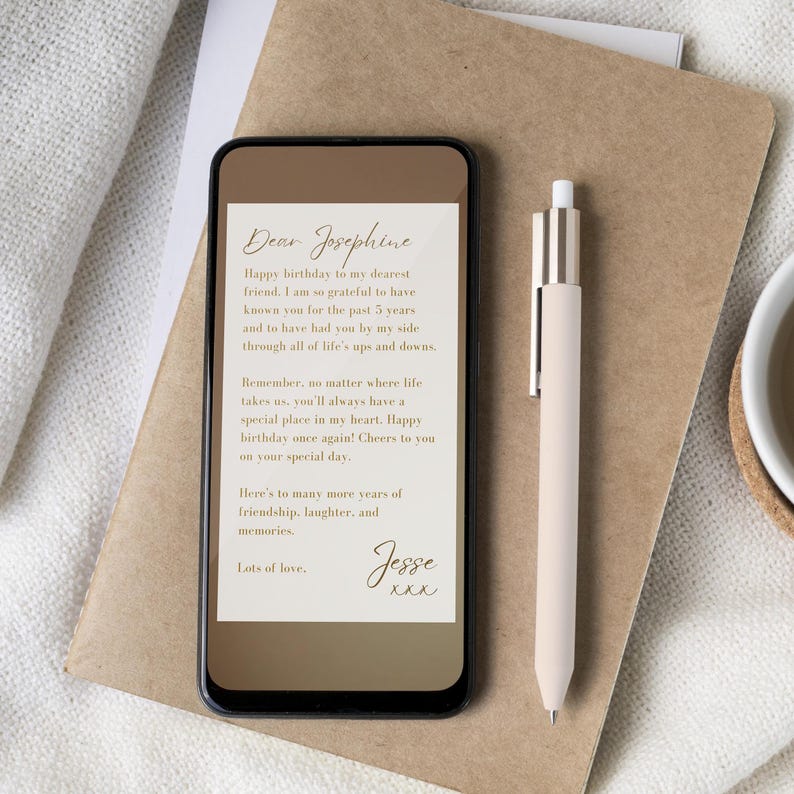 Dear Josephine
Happy birthday to my dearest
friend. I am so grateful to have
known you for the past 5 years
and to have had you by my side
through all of life's ups and downs.
Remember, no matter where life
takes us, you'll always have a
special place in my heart. Happy
birthday once again! Cheers to you
on your special day.
Here's to many more years of
friendship, laughter, and
memories.
Lots of love,
Jesse
xxx